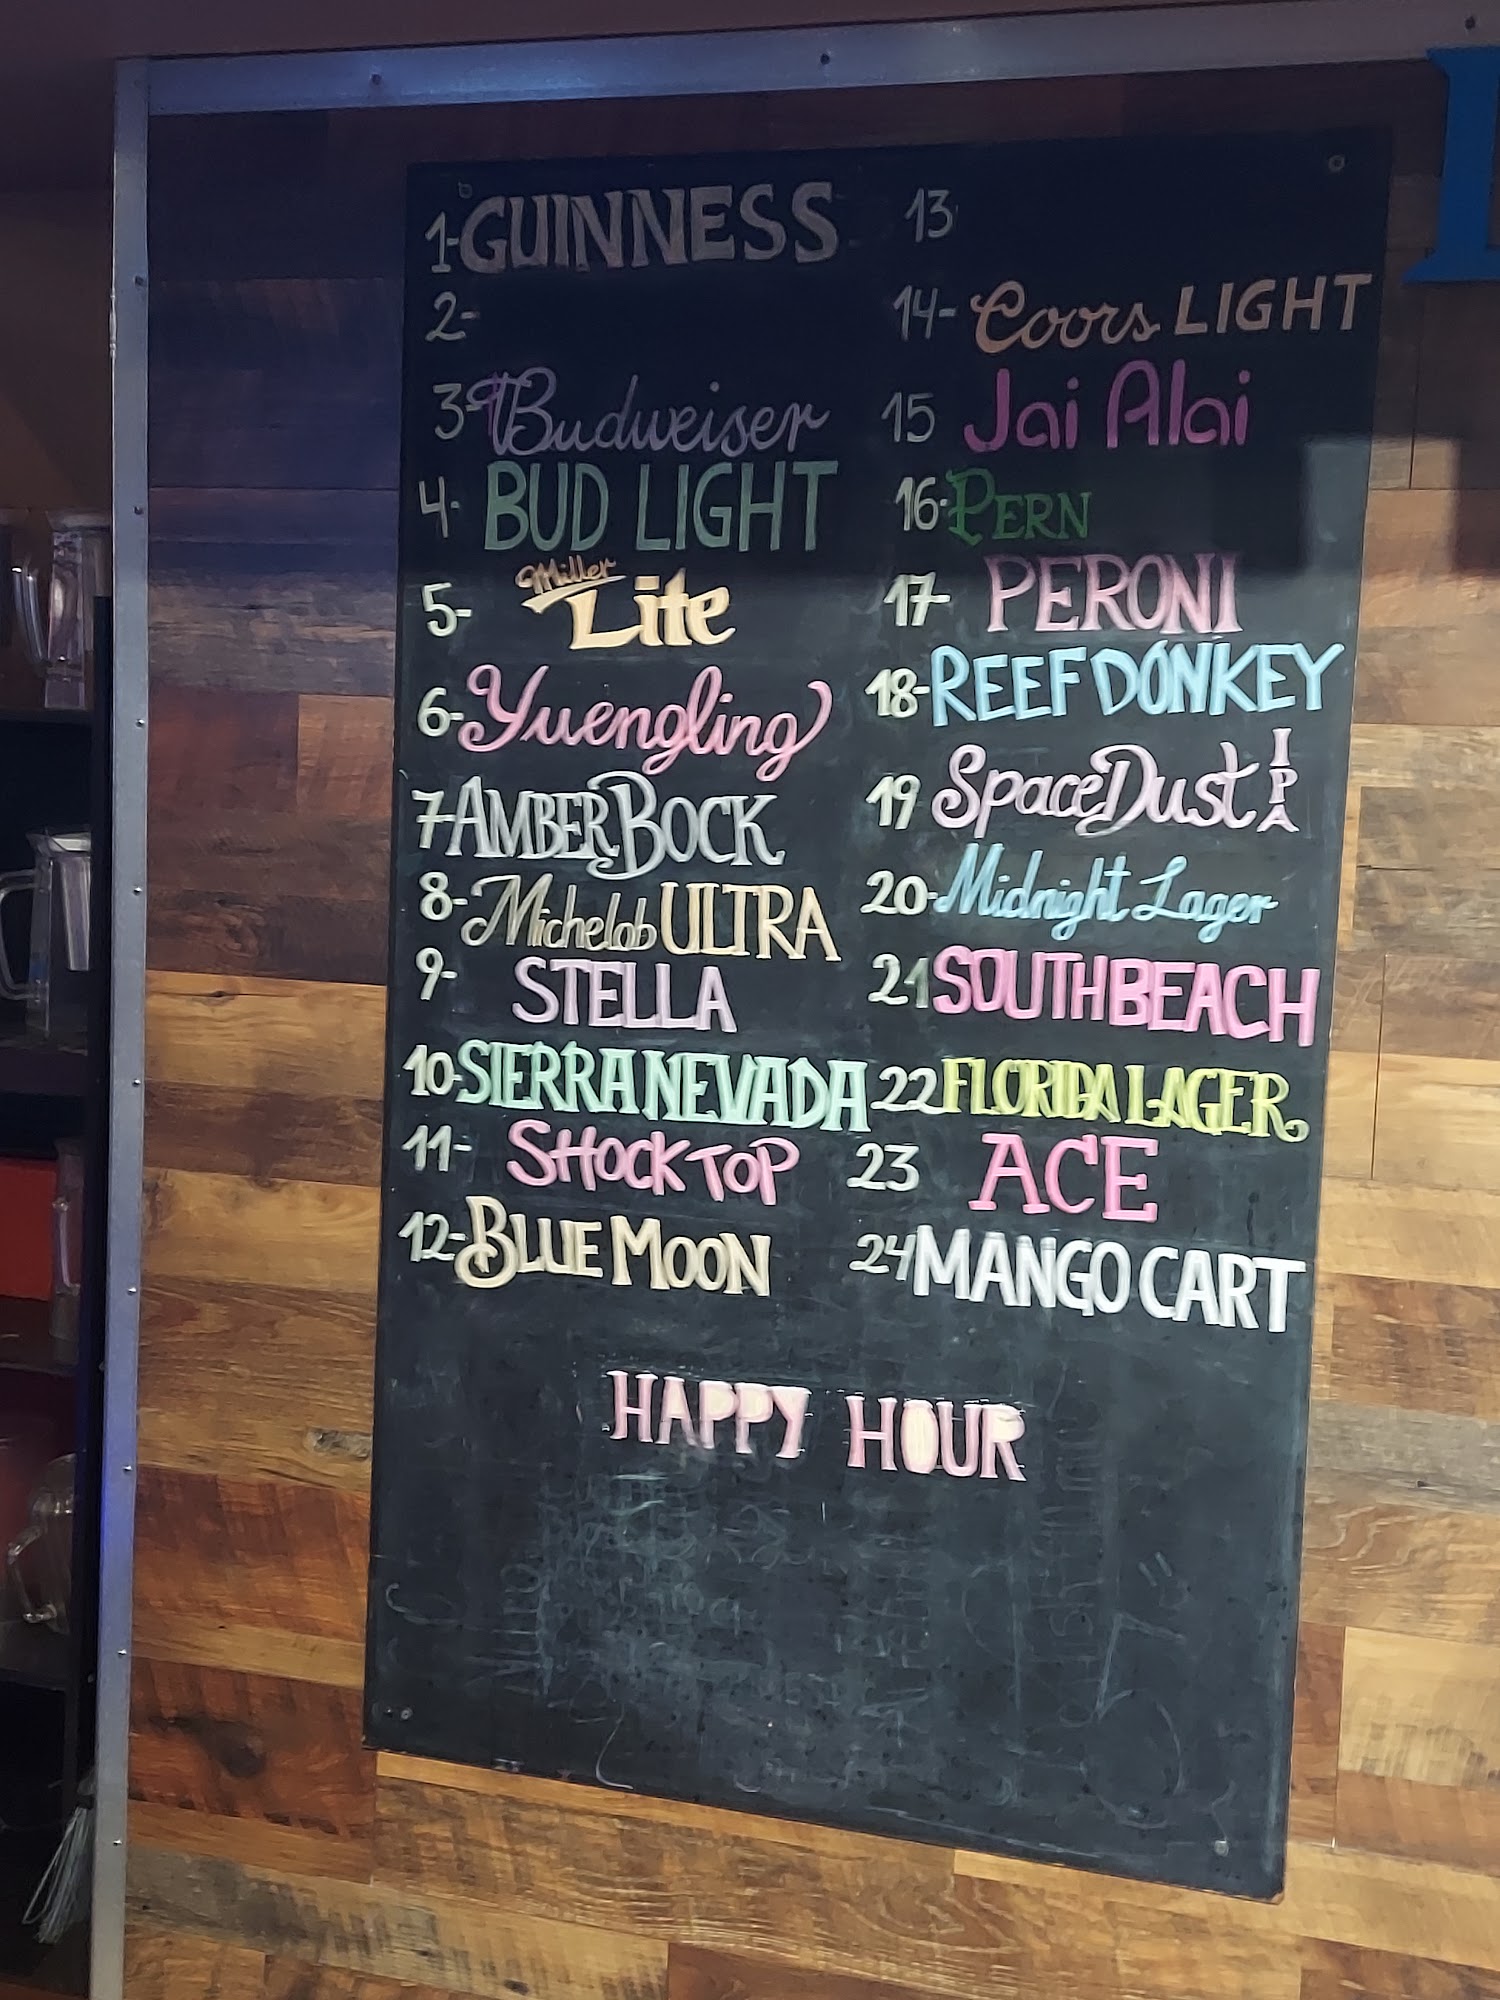 1-GUINNESS
2-
3-Budweiser
4- BUD LIGHT
5- Miller Lite
6-Yuengling
7-AMBERBOCK
8-Michelob ULTRA
9- STELLA
10-SIERRA NEVADA
11- SHOCK TOP
12-BLUE MOON
13
14- Coors LIGHT
15 Jai Alai
16-PERN
17- PERONI
18-REEF DONKEY
19 SpaceDust IPA
20-Midnight Lager
21 SOUTH BEACH
22 FLORIDA LAGER
23 ACE
24 MANGO CART
HAPPY HOUR